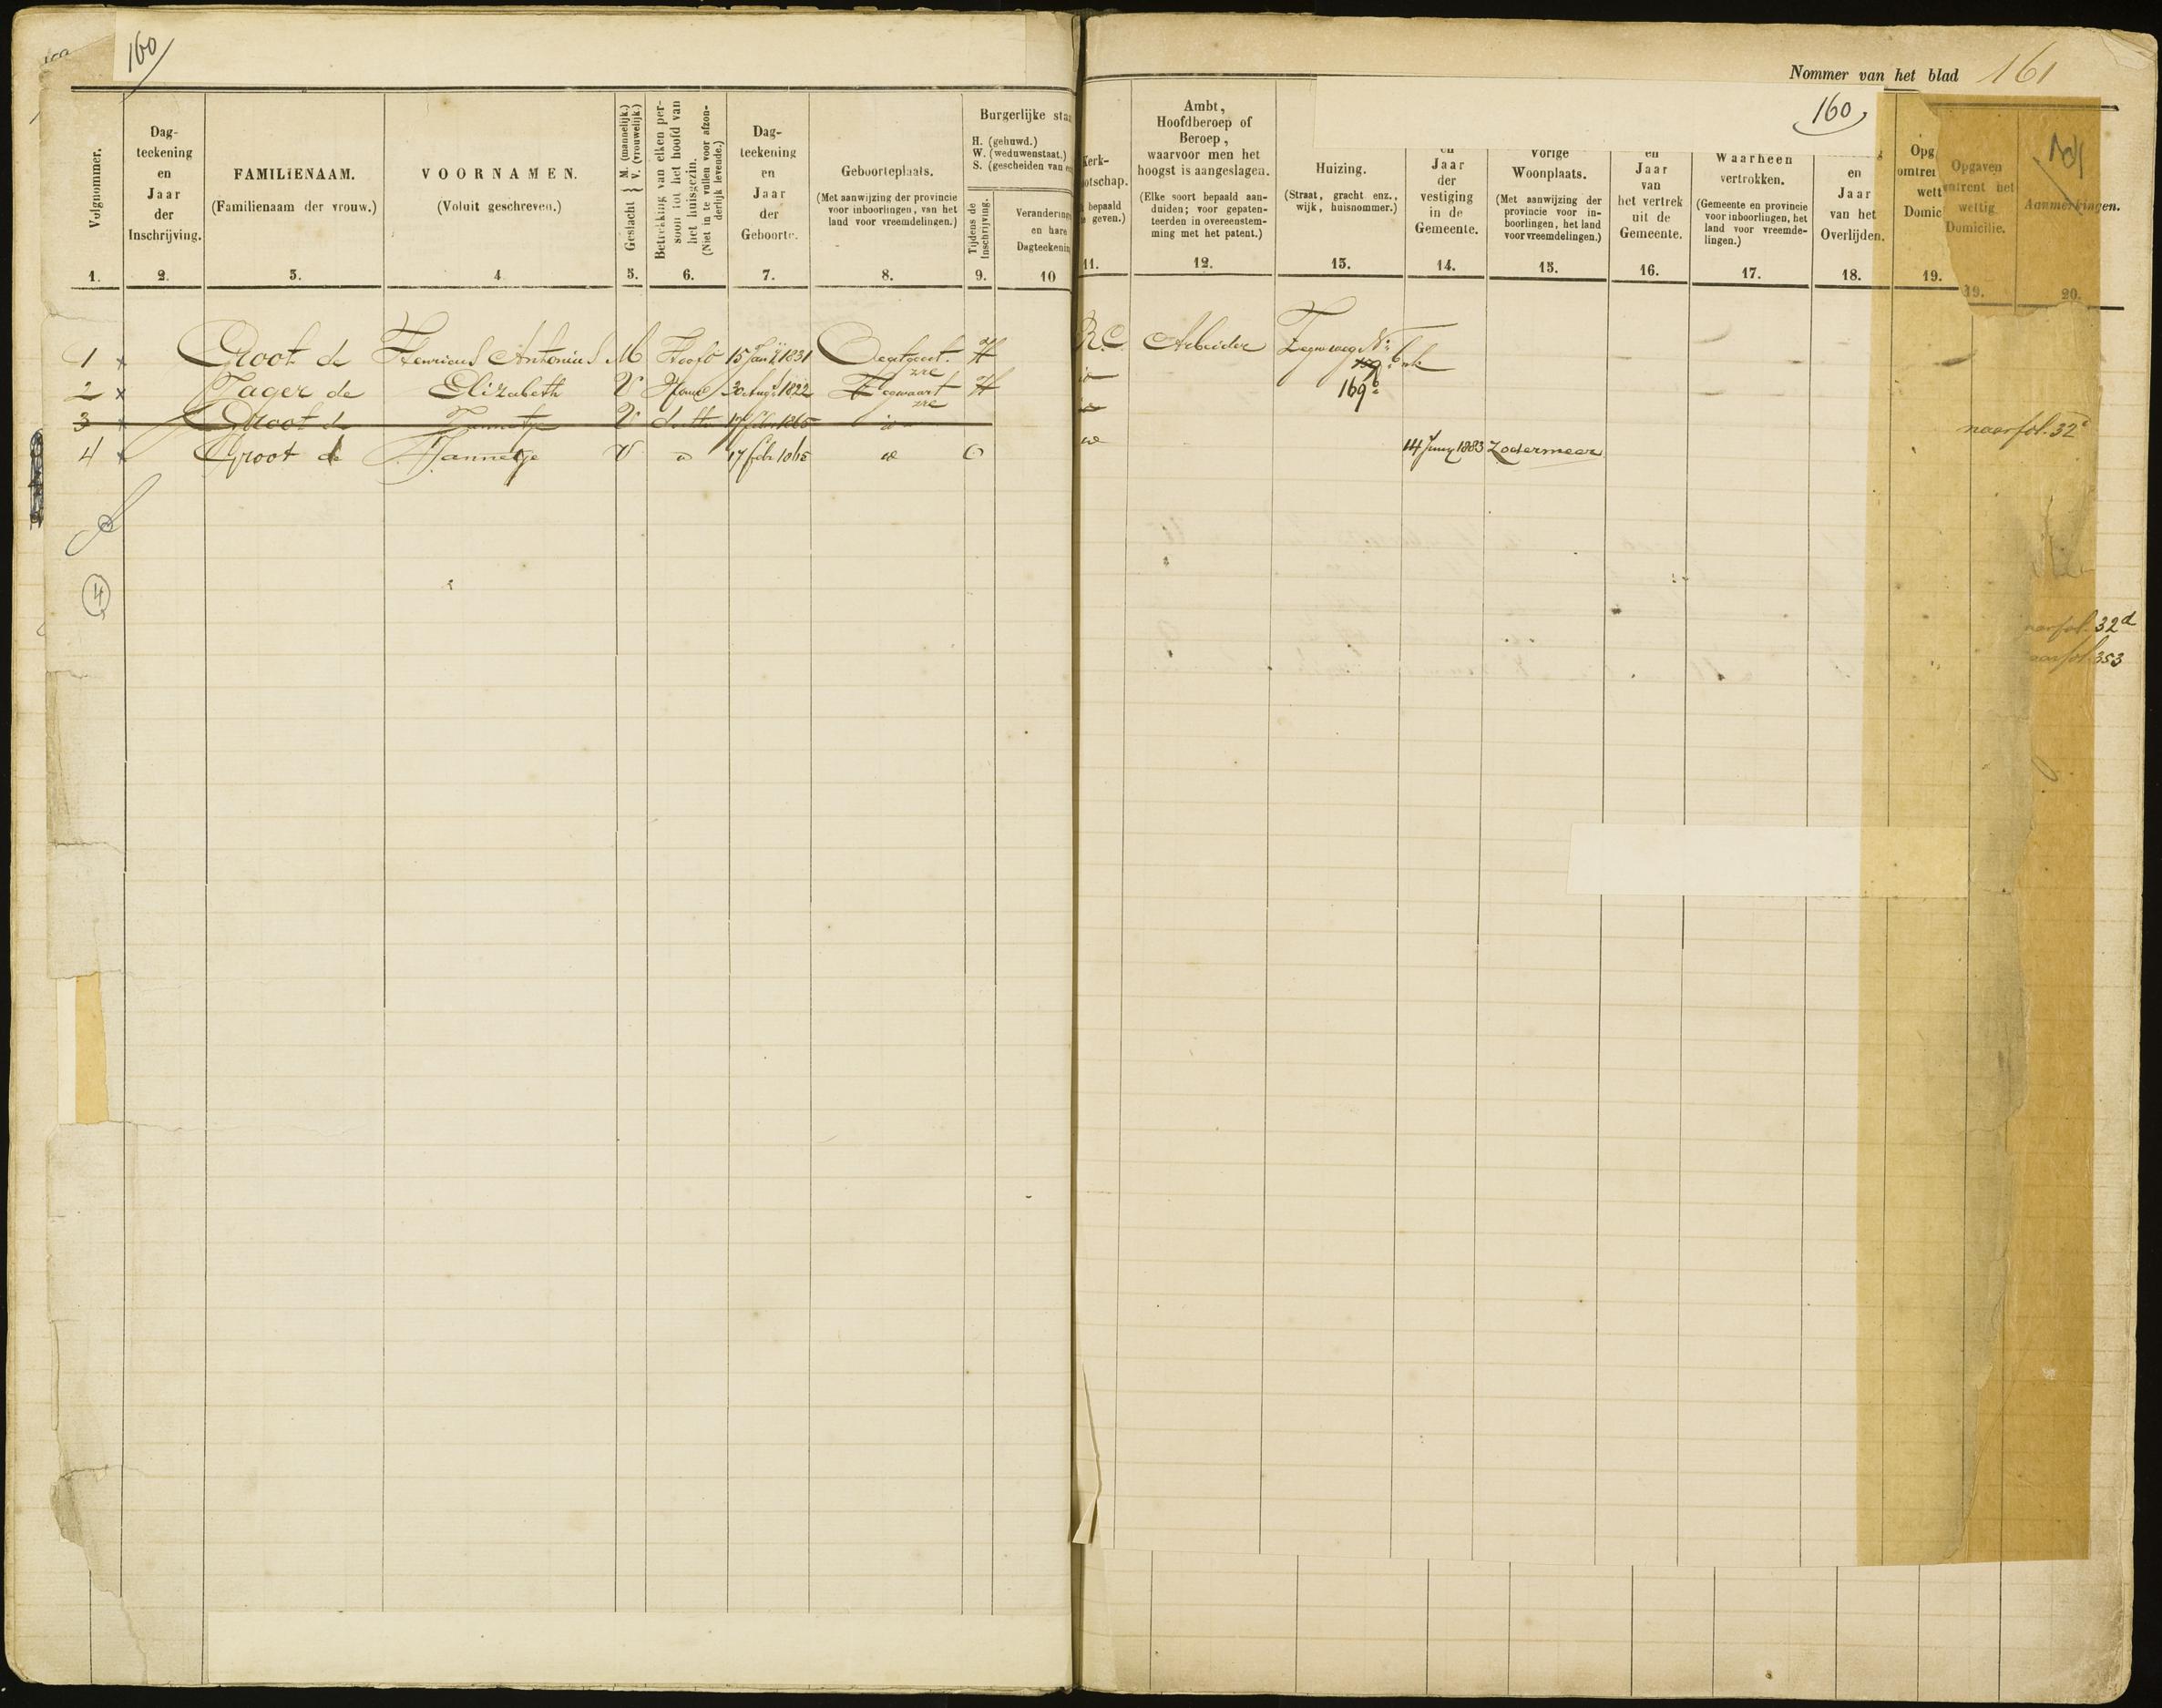 160
Nommer van het blad 161
160
Volgnommer.
1.
Dag-
teekening
en
Jaar
der
Inschrijving.
2.
FAMILIENAAM.
(Familienaam der vrouw.)
3.
VOORNAMEN.
(Voluit geschreven.)
4
Geslacht { M. (mannelijk.) V. (vrouwelijk.)
5.
Betrekking van elken per-
soon tot het hoofd van
het huisgezin.
(Niet in te vullen voor afzon-
derlijk levende.)
6.
Dag-
teekening
en
Jaar
der
Geboorte.
7.
Geboorteplaats.
(Met aanwijzing der provincie
voor inboorlingen, van het
land voor vreemdelingen.)
8.
Burgerlijke sta
H. (gehuwd.)
W. (weduwenstaat.)
S. (gescheiden van
Tijdens de
Inschrijving.
9.
Verandering
en hare
Dagteekening
10
Kerk-
otschap.
bepaald
geven.)
11.
Ambt,
Hoofdberoep of
Beroep,
waarvoor men het
hoogst is aangeslagen.
(Elke soort bepaald aan-
duiden; voor gepaten-
teerden in overeenstem-
ming met het patent.)
12.
Huizing.
(Straat, gracht enz.,
wijk, huisnommer.)
13.
en
Jaar
der
vestiging
in de
Gemeente.
14.
Vorige
Woonplaats.
(Met aanwijzing der
provincie voor in-
boorlingen, het land
voor vreemdelingen.)
15.
en
Jaar
van
het vertrek
uit de
Gemeente.
16.
Waarheen
vertrokken.
(Gemeente en provincie
voor inboorlingen, het
land voor vreemde-
lingen.)
17.
en
Jaar
van het
Overlijden.
18.
Opg
omtren
wett
Domic
19.
Opgaven
omtrent het
wettig
Domicilie.
19.
Aanmerkingen.
20.
1 x Groot de Henricus Antonius M Hoofd 15 Jan 1831 Oegstgeest. H R.C. Arbeider Zegwweg No
zre
2 x Jager de Elizabeth V 30 Aug 1822 Zegwaart H
169
zre
3 x Groot de Jannetje V 17 feb 1865
naar fol. 32
4 x Groot de Jannetje V 17 feb O 14 Juny 1883 Zoetermeer
4
naar fol. 32d
naar fol. 353